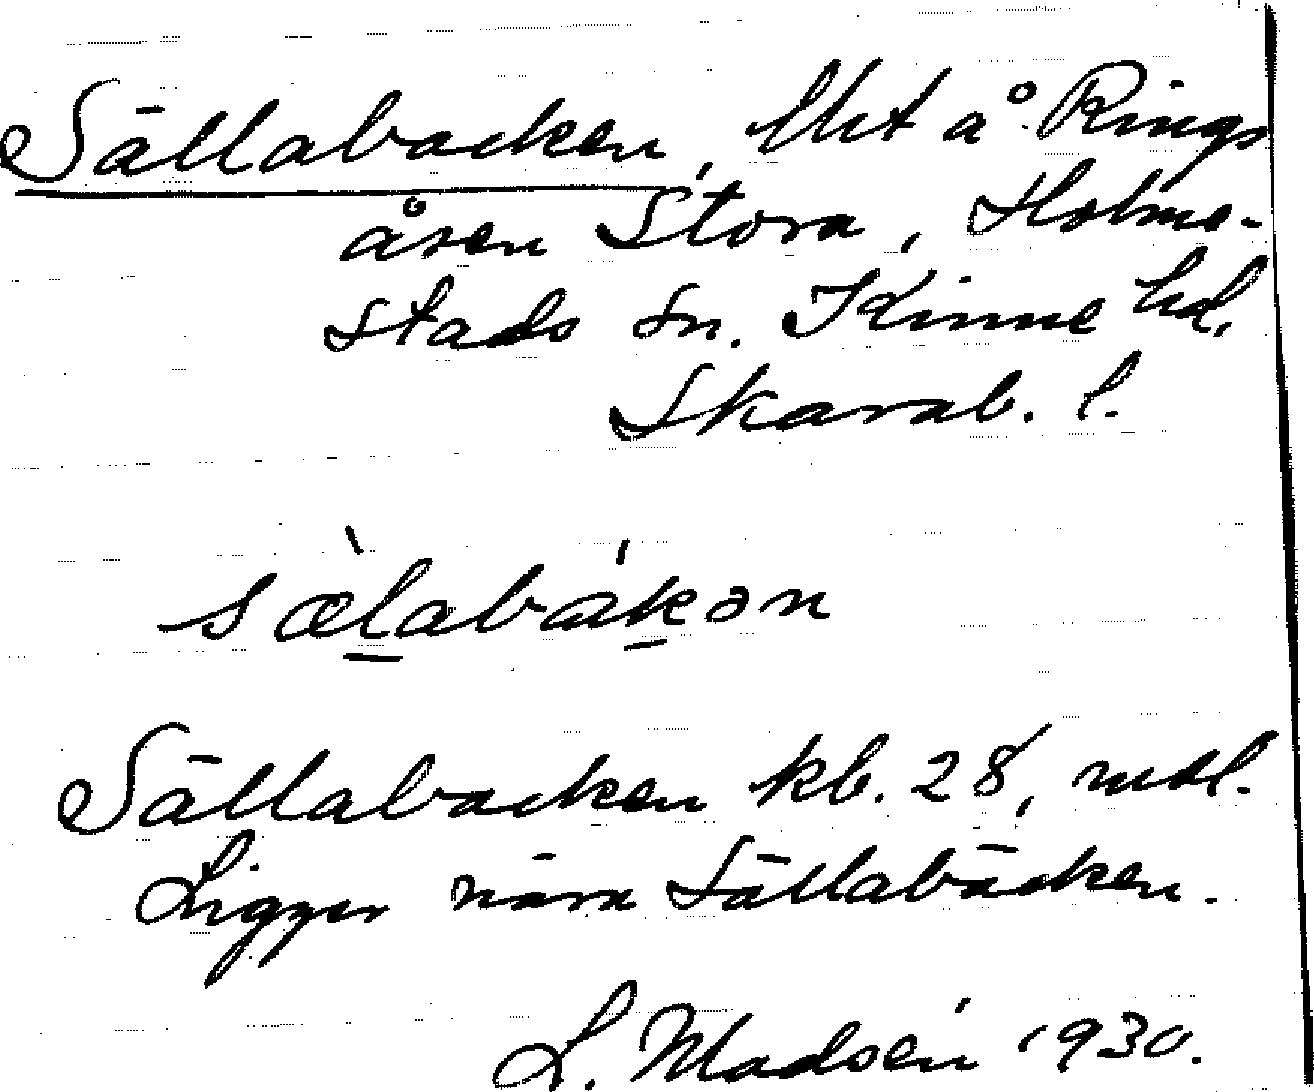 Sällabacken, lht å Rings
åsen Stora, Holme-
stads sn. Kinne hd,
Skarab. l.
sæ̀labákən
Sällabacken kb. 28, mtl.
Ligger nära Sällabäcken.
L. Madsén 1930.